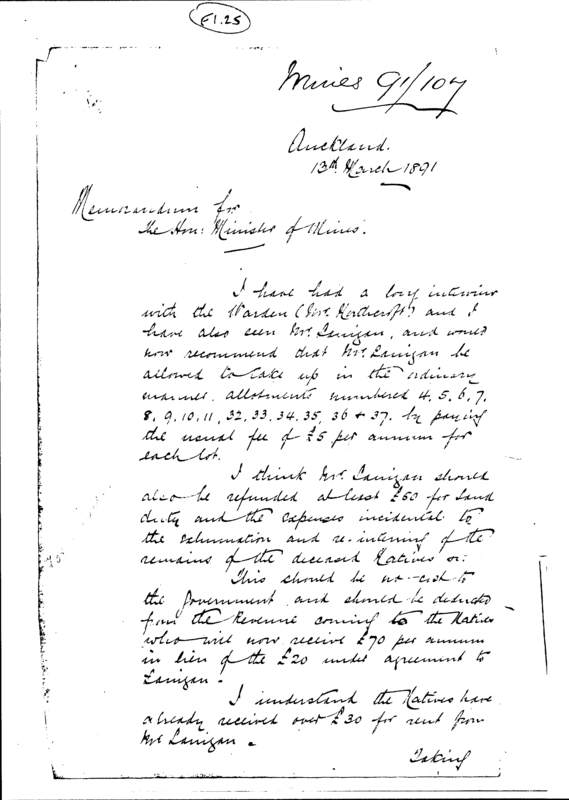 E1.25
Mines 91/107
Auckland.
13th March 1891
Memorandum for
the Hon: Minister of Mines.
I have had a long interview
with the Warden (Mr. Northcroft) and I
have also seen Mr. Lanigan, and would
now recommend that Mr. Lanigan be
allowed to take up in the ordinary
manner, allotments numbered 4, 5, 6, 7,
8, 9, 10, 11, 32, 33, 34, 35, 36 + 37. by paying
the usual fee of £5 per annum for
each lot.
I think Mr. Lanigan should
also be refunded at least £50 for
duty and the expenses incidental to
the exhumation and re-interring of the
remains of the deceased Natives
This should be no cost to
the Government, and should be deducted
from the Revenue coming to the Natives
who will now receive £70 per annum
in lieu of the £20 under agreement to
Lanigan.
I understand the Natives have
already received over £30 for rent from
Mr Lanigan.
Taking